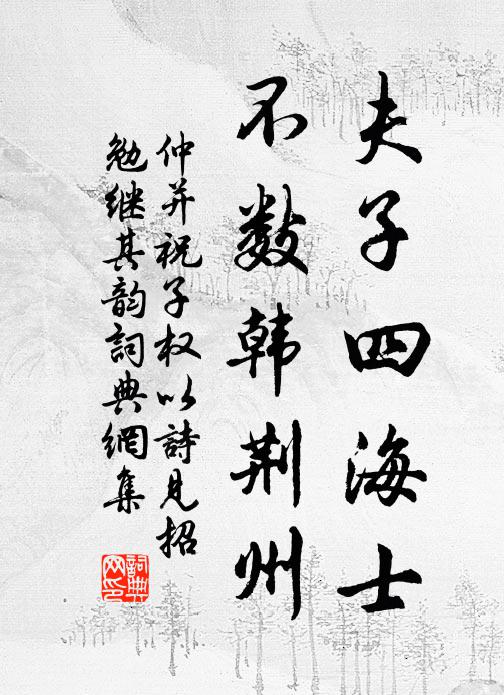 夫子四海士
不数韩荆州
仲并祝子权以詩見招
勉继其韵詞典網集
詞典
网印